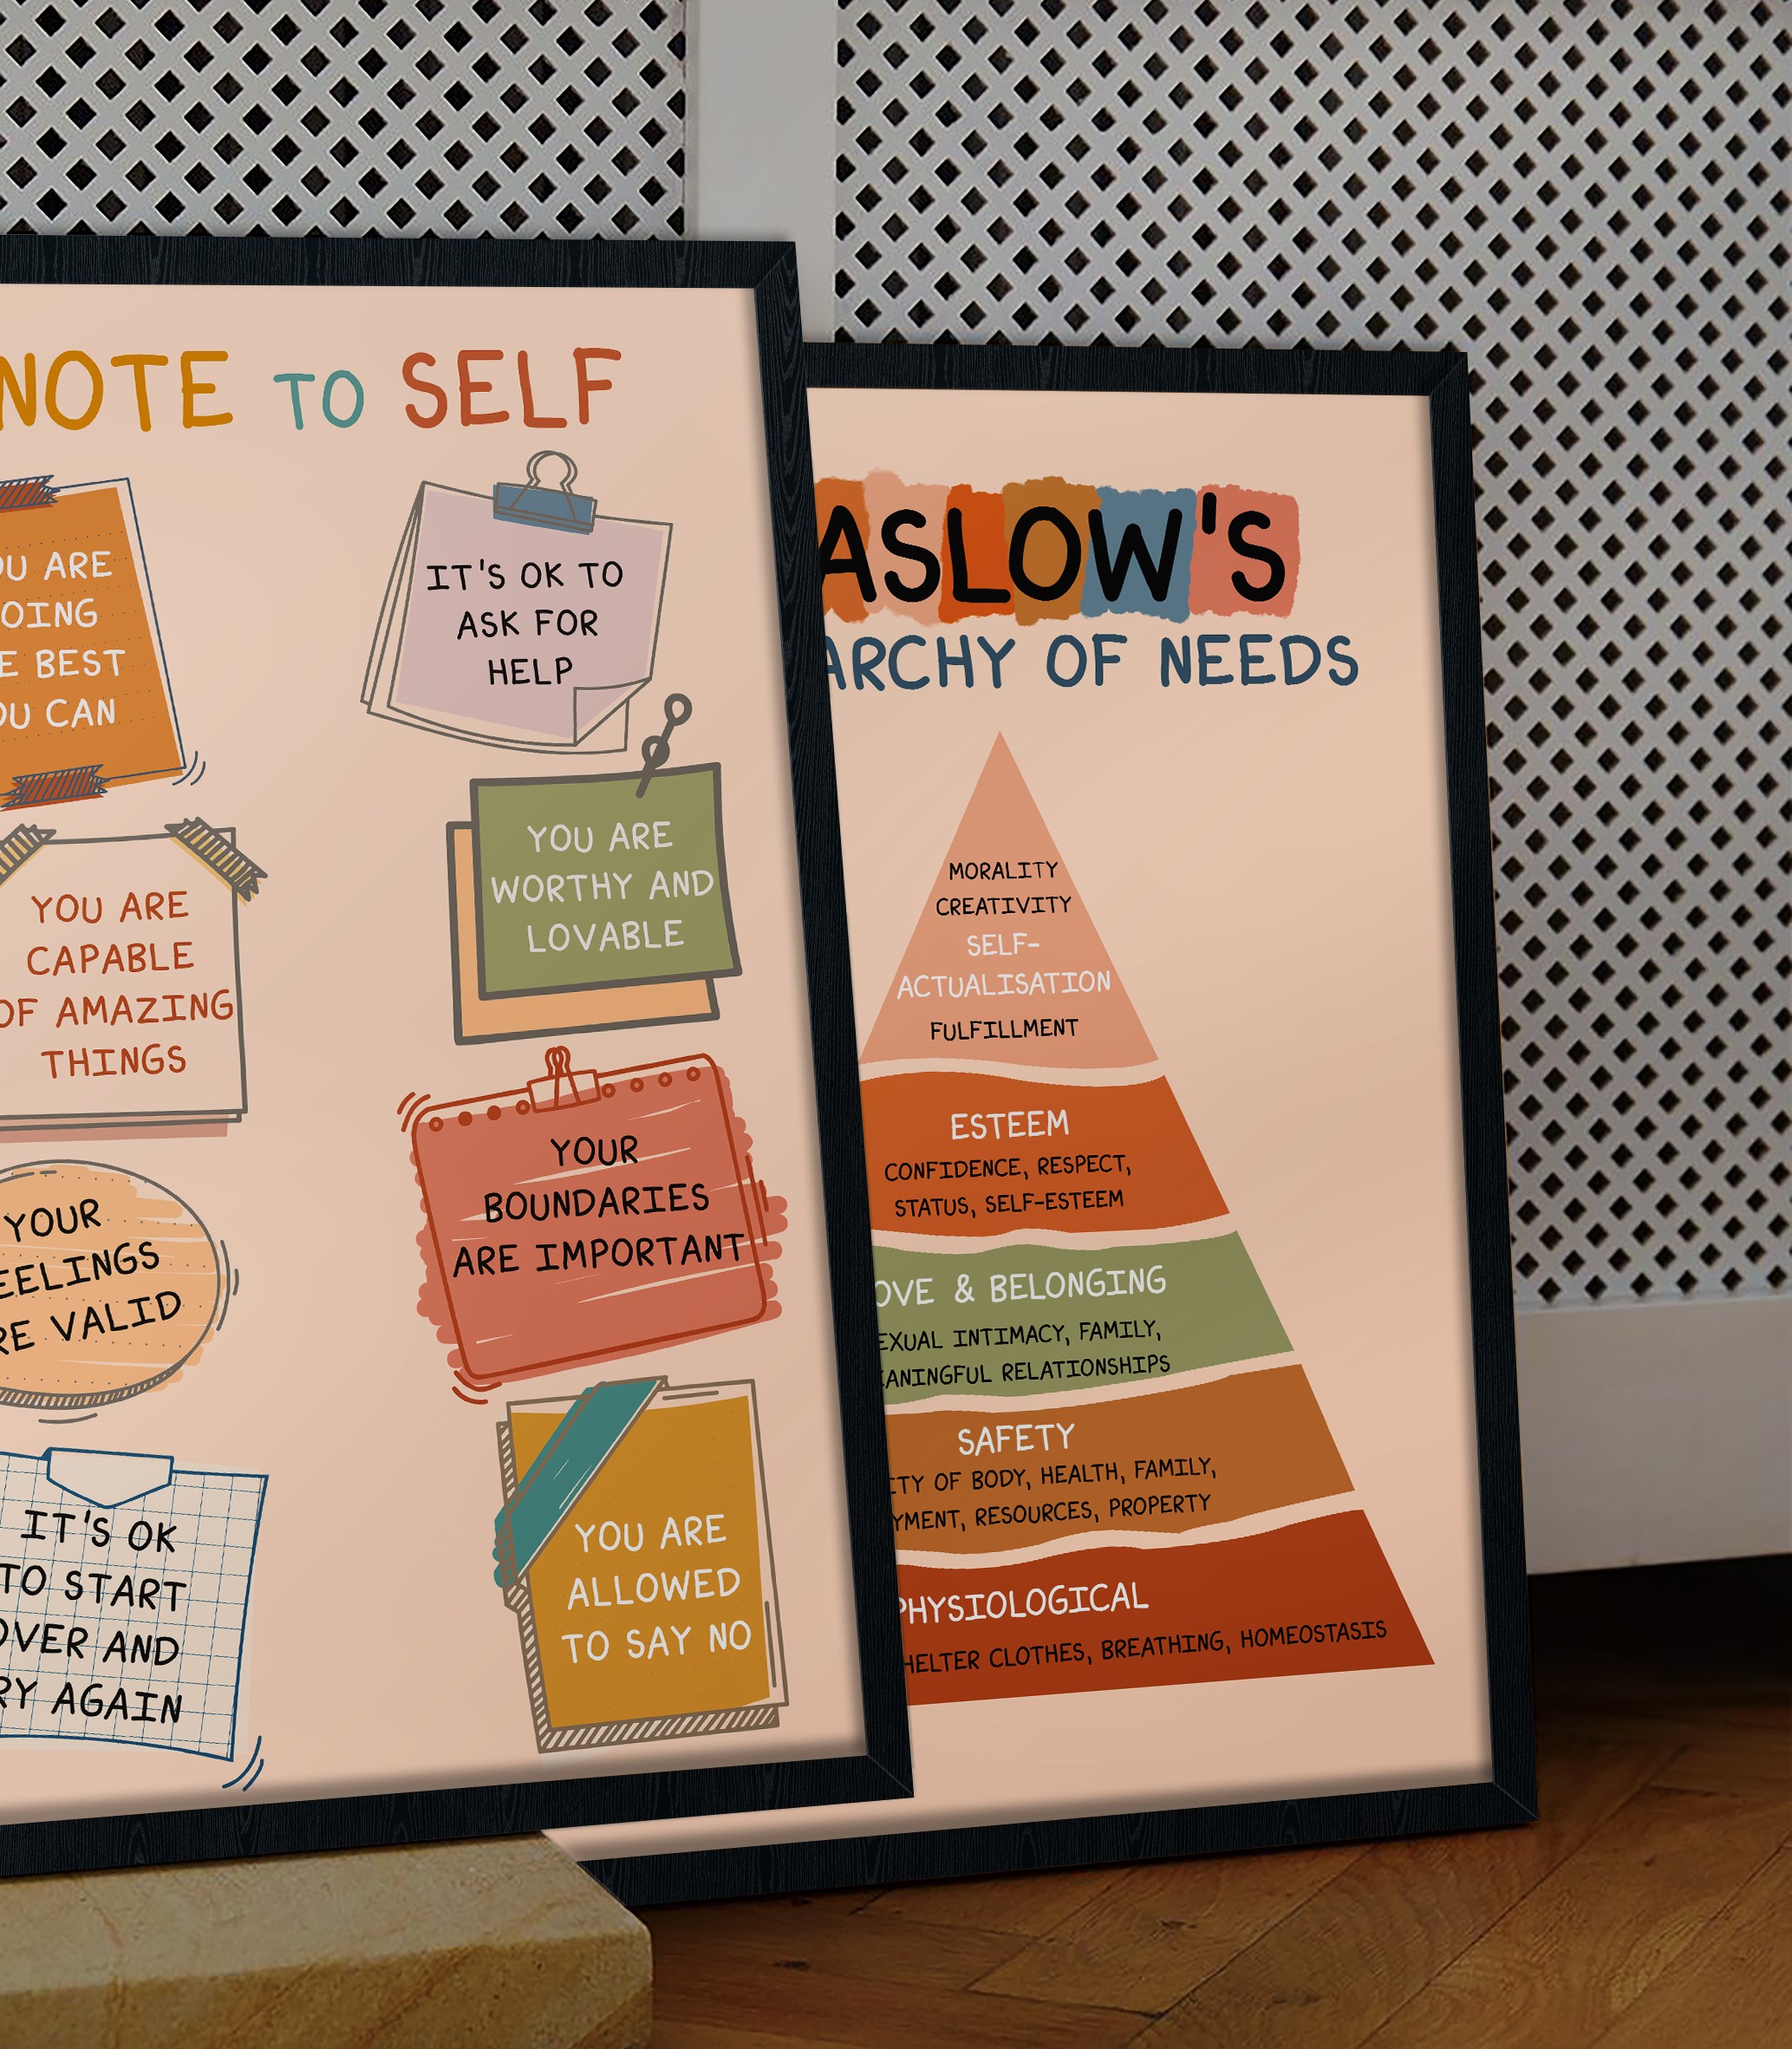 NOTE TO SELF
OU ARE
OING
E BEST
OU CAN
IT'S OK TO
ASK FOR
HELP
YOU ARE
CAPABLE
OF AMAZING
THINGS
YOU ARE
WORTHY AND
LOVABLE
YOUR
EELINGS
RE VALID
YOUR
BOUNDARIES
ARE IMPORTANT
IT'S OK
TO START
OVER AND
RY AGAIN
YOU ARE
ALLOWED
TO SAY NO
ASLOW'S
ARCHY OF NEEDS
MORALITY
CREATIVITY
SELF-
ACTUALISATION
FULFILLMENT
ESTEEM
CONFIDENCE, RESPECT,
STATUS, SELF-ESTEEM
OVE & BELONGING
EXUAL INTIMACY, FAMILY,
EANINGFUL RELATIONSHIPS
SAFETY
ITY OF BODY, HEALTH, FAMILY,
YMENT, RESOURCES, PROPERTY
PHYSIOLOGICAL
HELTER CLOTHES, BREATHING, HOMEOSTASIS